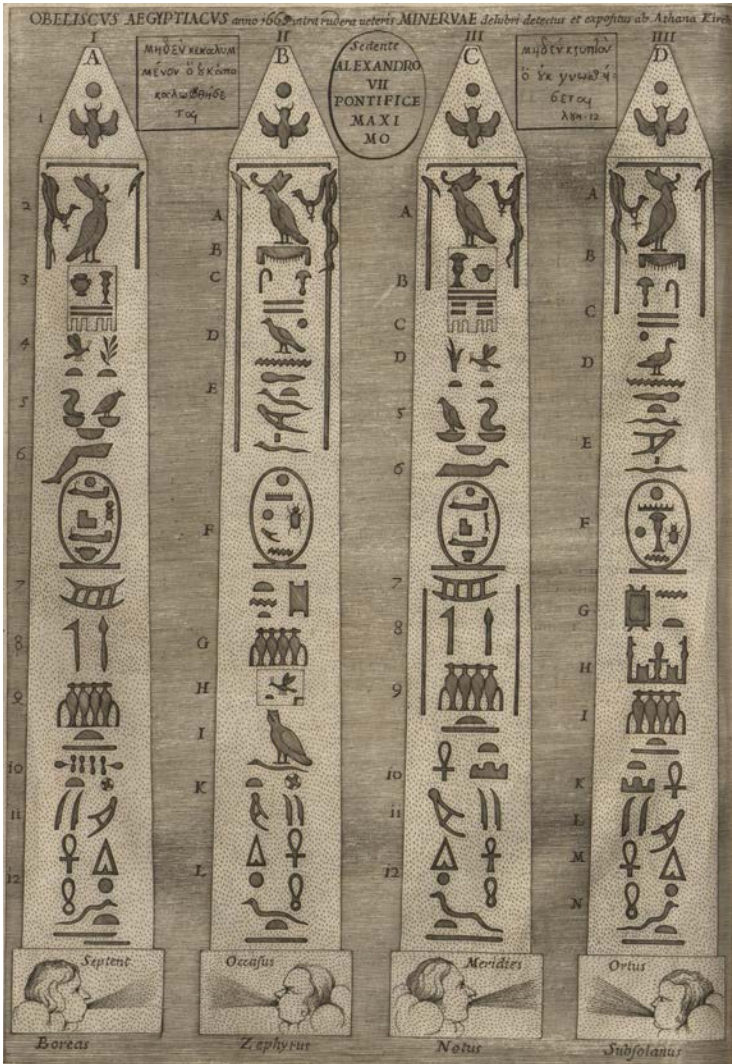 OBELISCVS AEGYPTIACVS anno 1665 intra rudera ueteris MINERVAE delubri detectus et expositus ab Athana Kirch
I II III IIII
A B C D
μηδὲν κεκαλυμ
μένον ὃ ὐκ ἀπο
καλυφθήσε
ται
Sedente
ALEXANDRO
VII
PONTIFICE
MAXI
MO
μηδὲν κρυπτὸν
ὃ ὐκ γνωσθή-
σεται
λυκ. 12
1
2
3
4
5
6
7
8
9
10
11
12
A
B
C
D
E
F
G
H
I
K
L
A
B
C
D
5
6
7
8
9
10
11
12
A
B
C
D
E
F
G
H
I
K
L
M
N
Septent
Occasus
Meridies
Ortus
Boreas
Zephyrus
Notus
Subsolanus